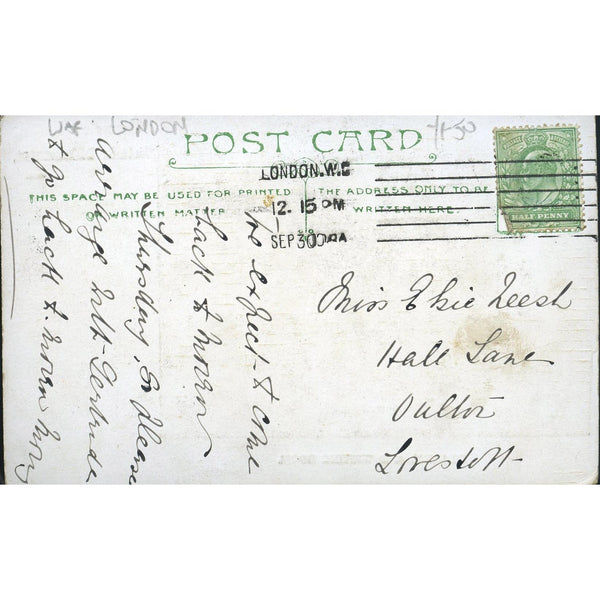 LONDON
POST CARD
THIS SPACE MAY BE USED FOR PRINTED
OR WRITTEN MATTER
THE ADDRESS ONLY TO BE
WRITTEN HERE.
LONDON. W.C
12. 15 PM
SEP 30
HALF PENNY
We expect to come
back to
Thursday, so please
arrange with Gertrude
& go back to
Miss Elsie
Hall Lane
Oulton
Lowestoft